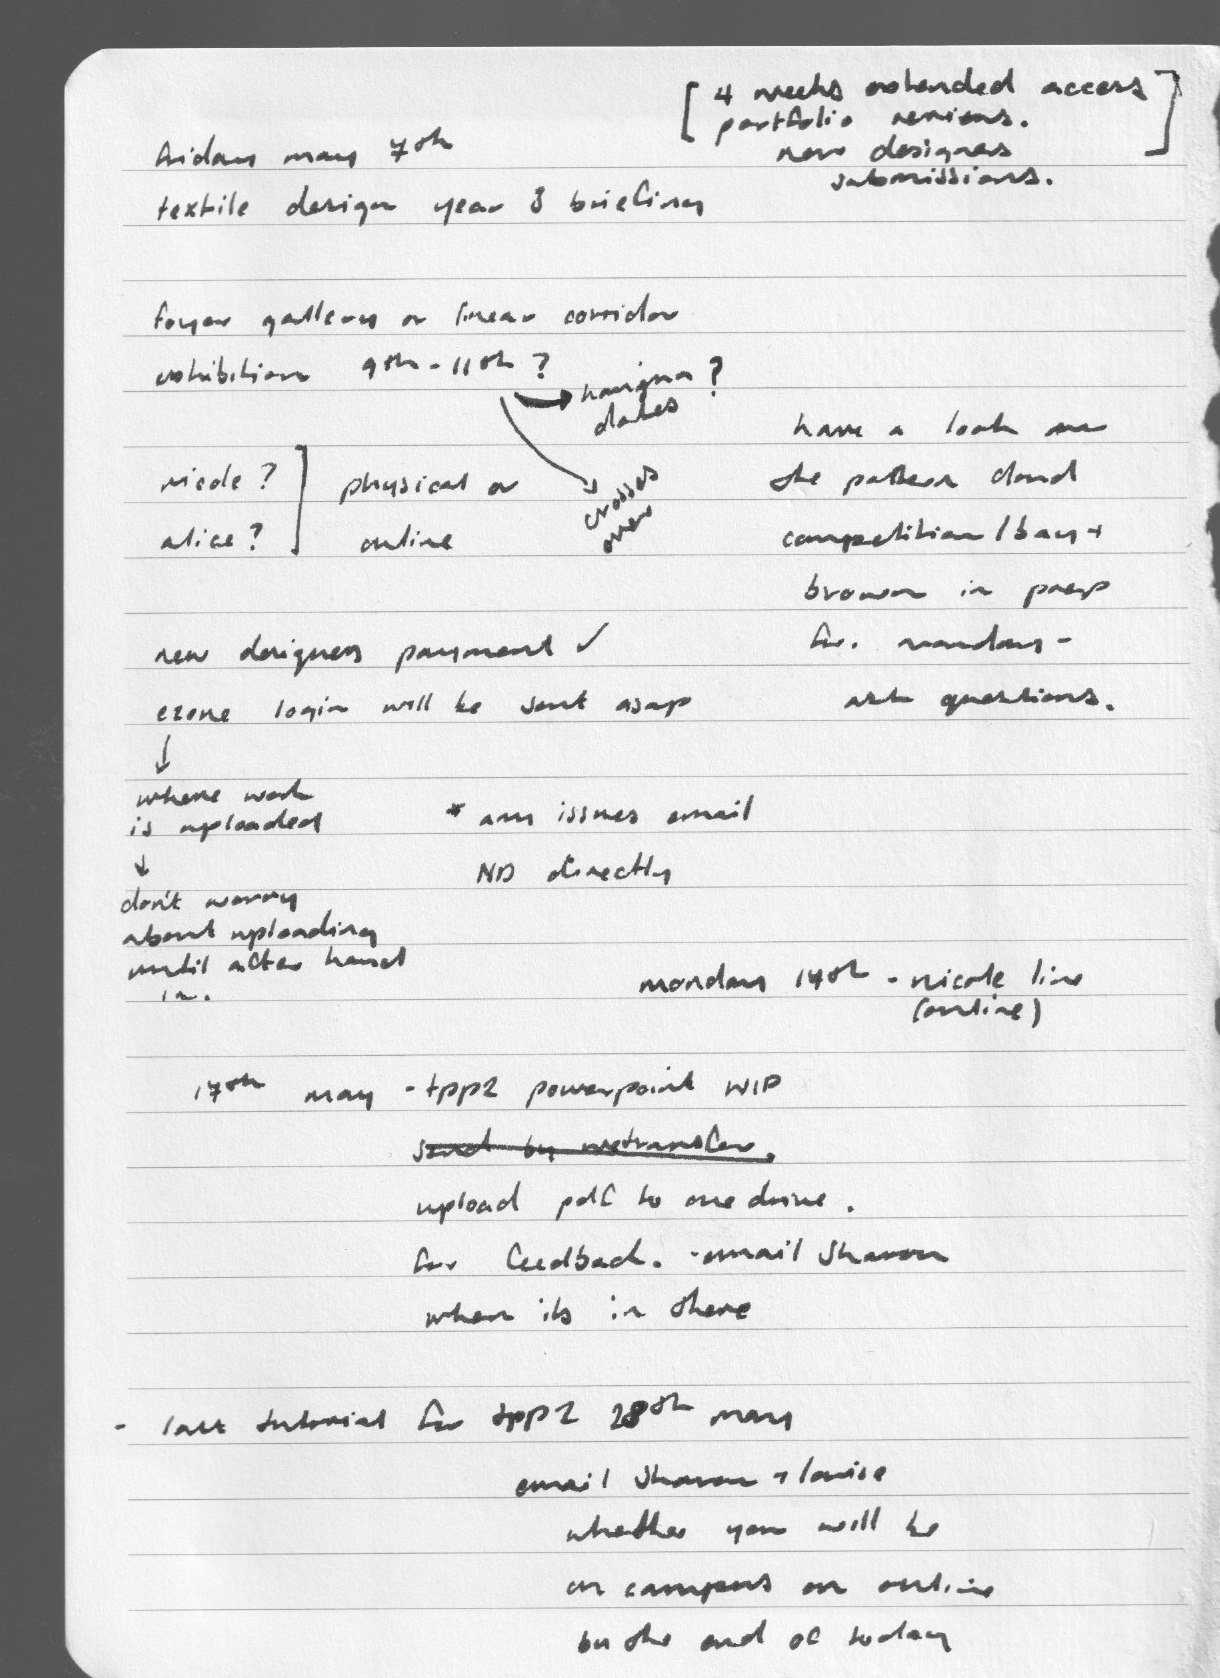 [ 4 weeks extended access ]
portfolio reviews.
new designers
submissions.
friday may 7th
textile design year 3 briefing
foyer gallery or linear corridor
exhibition 9th - 11th ?
hanigma ?
dates
crosses
over
nicole ?
alice ?
physical or
online
have a look on
the pattern cloud
competition / bay +
brown in prep
for. monday -
ask questions.
new designers payment ✓
ezone login will be sent asap
↓
where work
is uploaded
↓
don't worry
about uploading
until after hand
in.
* any issues email
ND directly
monday 14th - nicole line
(online)
17th may - tpp2 powerpoint WIP
send by wetransfer.
upload pdf to one drive.
for feedback. - email Sharon
when its in there
- last tutorial for tpp2 28th may
email Sharon + louise
whether you will be
on campus or online
by the end of today